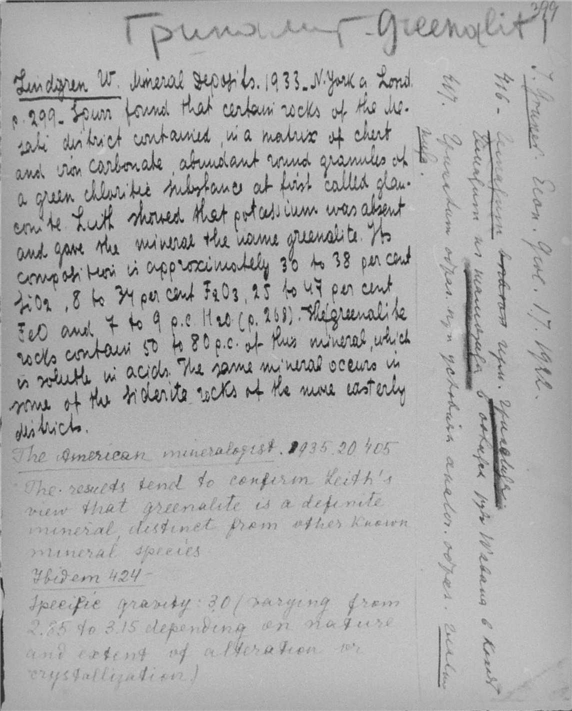 399
Гриналит - Greenalit
Lindgren W. Mineral Deposits. 1933. N.York a Lond.
p. 299 - Spurr found that certain rocks of the Me-
sabi district contained, in a matrix of chert
and iron carbonate, abundant round granules of
a green chloritic substance at first called glau-
conite. Leith showed that potassium was absent
and gave the mineral the name greenalite. Its
composition is approximately 30 to 38 per cent
SiO2, 8 to 34 per cent Fe2O3, 25 to 47 per cent
FeO and 7 to 9 p.c. H2O (p. 268). The greenalite
rocks contain 50 to 80 p.c. of this mineral, which
is soluble in acids. The same mineral occurs in
some of the siderite rocks of the more easterly
districts.
The American mineralogist. 1935. 20 405
The results tend to confirm Leith's
view that greenalite is a definite
mineral, distinct from other known
mineral species
Ibidem 424 -
Specific gravity: 30 (varying from
2.85 to 3.15 depending on nature
and extent of alteration or
crystallization)
J. Econ. Geol. 17. 1922.
416 -
в
417.